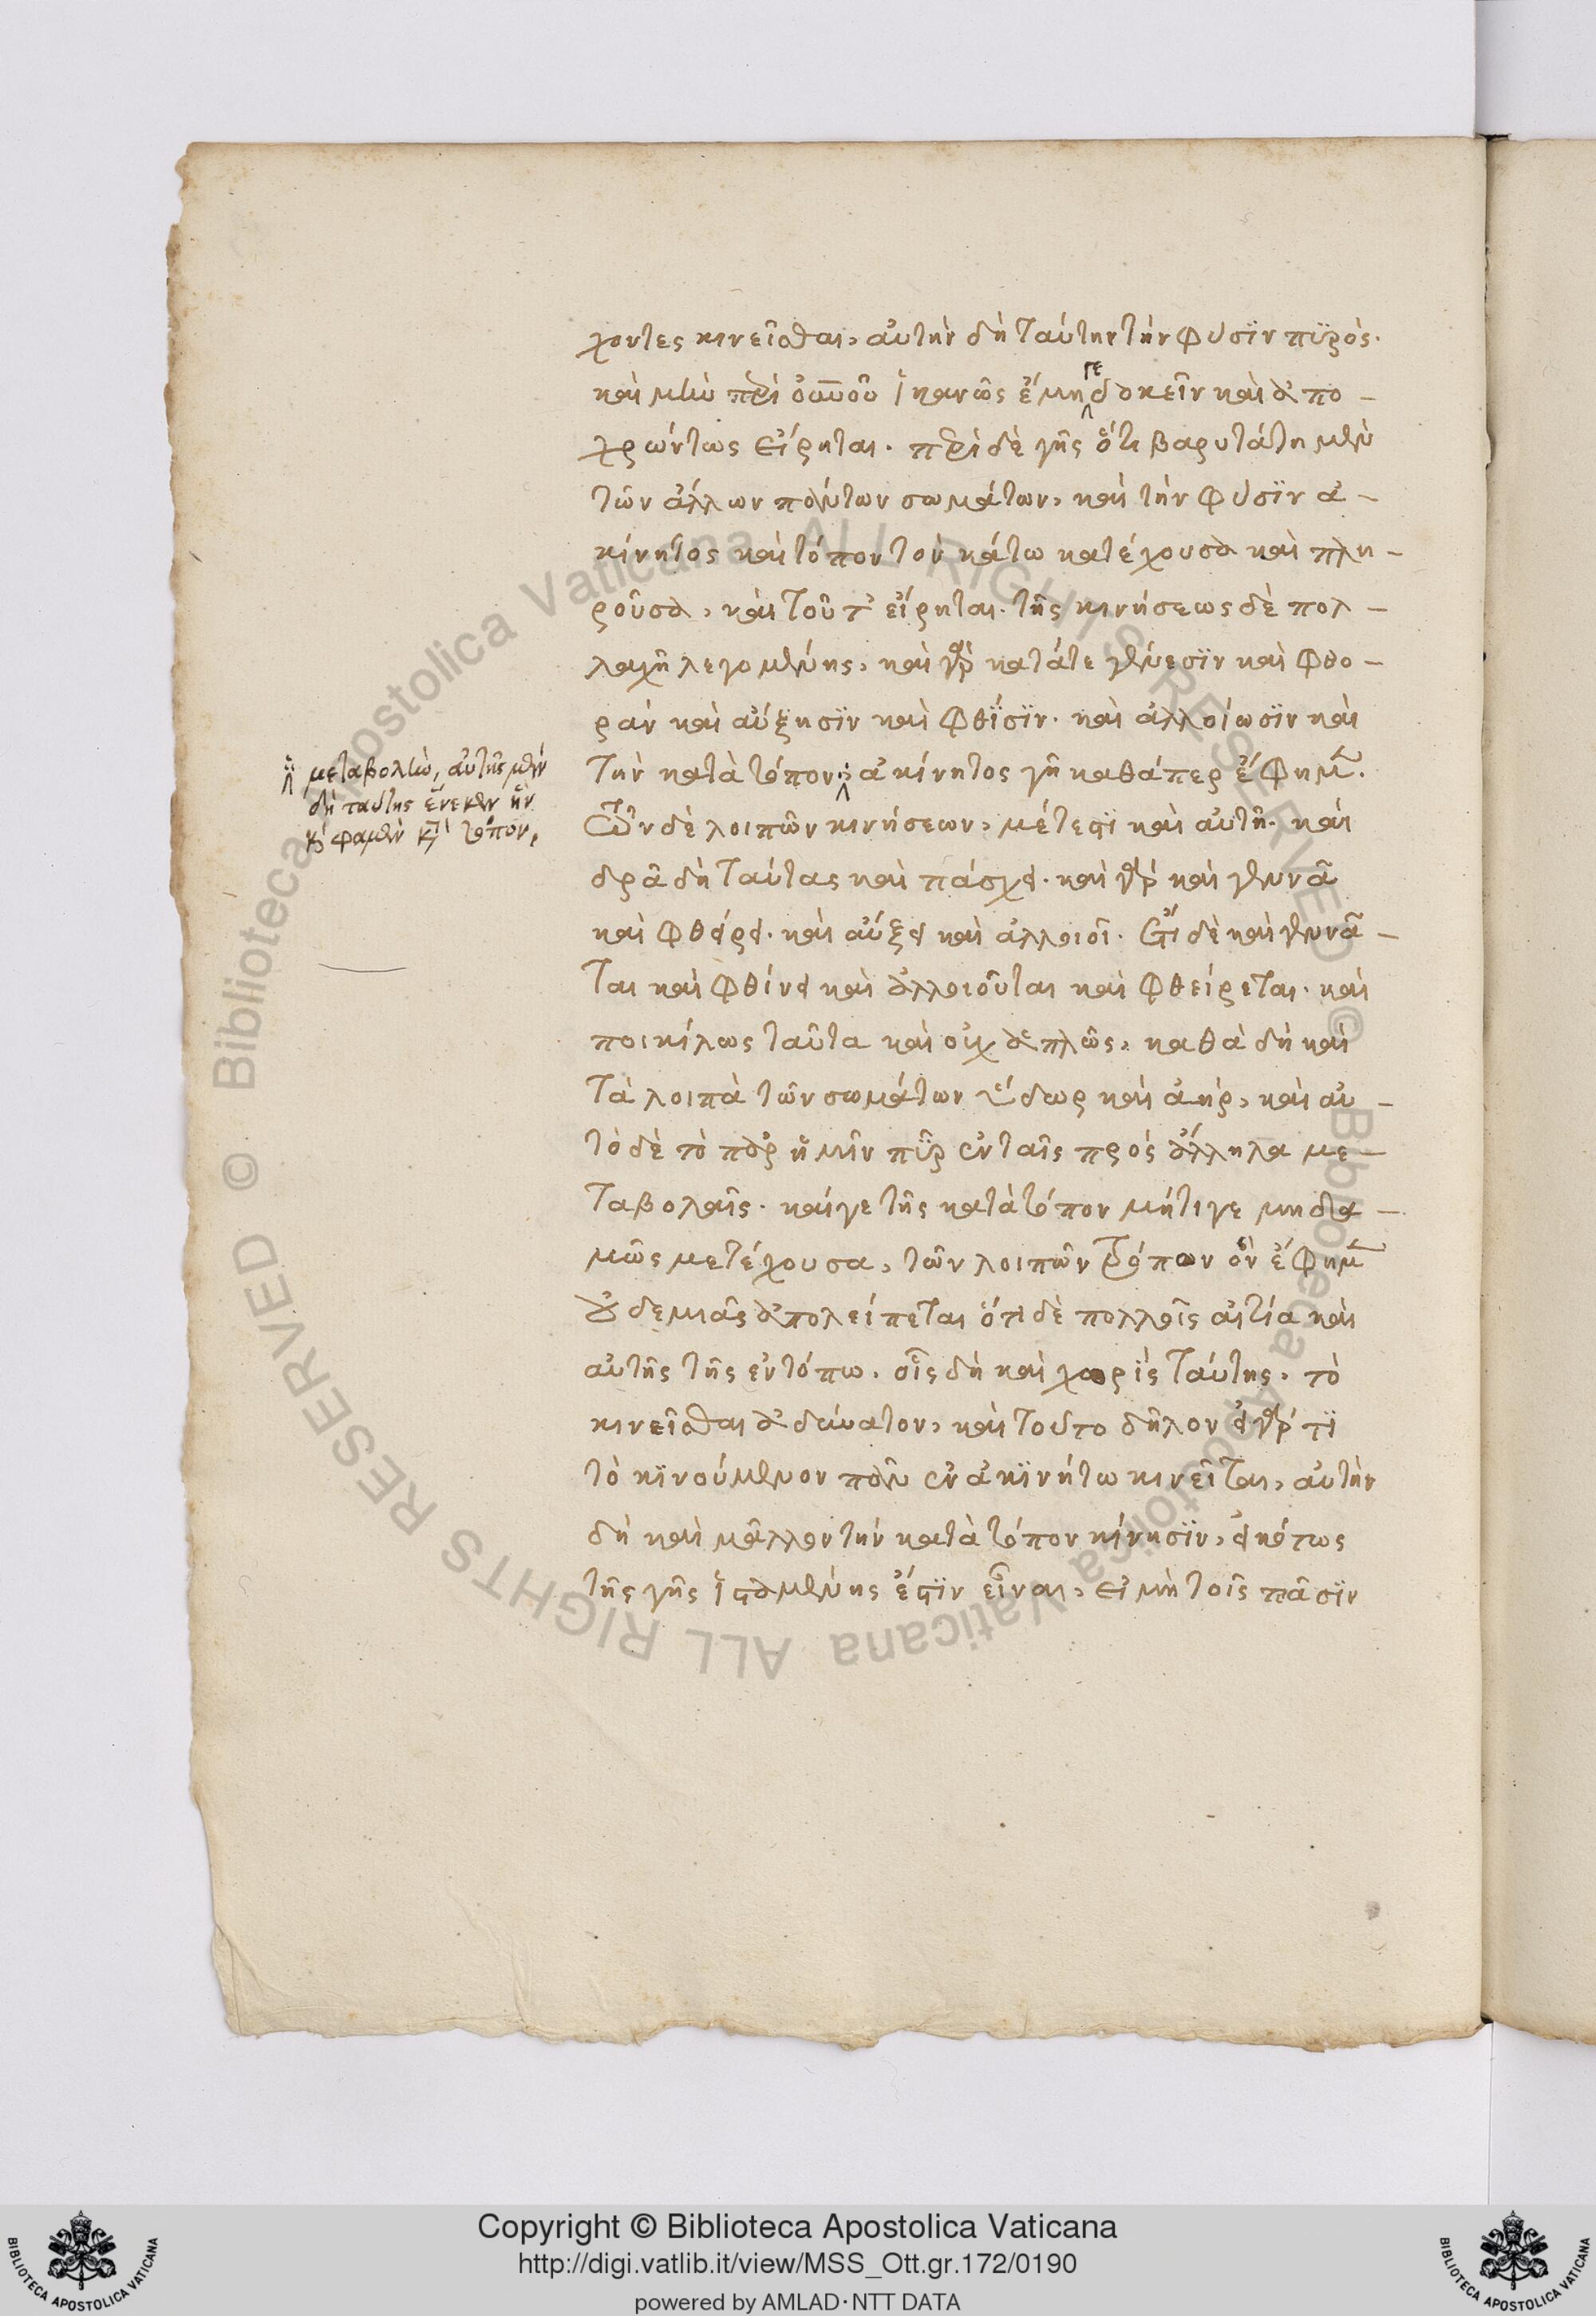 χοντες κινεῖσθαι, αὐτὴν δὴ ταύτην τὴν φύσϊν πϋρός.
καὶ μὴν περὶ οὐνοῦ ἱκανῶς ἐμῇ γε δοκεῖν καὶ ἀπο-
χρώντως εἴρηται. περὶ δὲ γῆς ὅτι βαρυτάτη μὲν
τῶν ἄλλων πάντων σωμάτων, καὶ τὴν φύσϊν ἀ-
κίνητος καὶ τόπον τὸν κάτω κατέχουσα καὶ πλη-
ροῦσα, καὶ τοῦτ' εἴρηται. τῆς κινήσεως δὲ πολ-
λαχῆ λεγομένης, καὶ γὰρ κατάτε γένεσϊν καὶ φθο-
ρὰν καὶ αὔξησϊν καὶ φθΐσϊν. καὶ ἀλλοίωσϊν καὶ
τὴν κατὰ τόπον ἀκίνητος γῆ καθάπερ ἔφημ.
μεταβολὴν, αὐτῆς μὲν
δὴ ταύτης ἕνεκεν ἣν
καὶ φαμὲν κατὰ τόπον,
τῶν δὲ λοιπῶν κινήσεων, μέτεστϊ καὶ αὐτῆ. καὶ
δρᾶ δὴ ταύτας καὶ πάσχει. καὶ γὰρ καὶ γεννᾶ
καὶ φθείρει. καὶ αὔξει καὶ ἀλλοιοῖ. ἔτι δὲ καὶ γεννᾶ-
ται καὶ φθίνει καὶ ἀλλοιοῦται καὶ φθείρεται. καὶ
ποικίλως ταῦτα καὶ οὐχ ἁπλῶς, καθὰ δὴ καὶ
τὰ λοιπὰ τῶν σωμάτων ὕδωρ καὶ ἀὴρ, καὶ αὐ-
τὸ δὲ τὸ παρ' ἡμῖν πῦρ ἐν ταῖς πρὸς ἄλληλα με-
ταβολαῖς. καίγε τῆς κατὰ τόπον μήτιγε μηδα-
μῶς μετέχουσα, τῶν λοιπῶν τρόπον ὃν ἔφημ
οὐδεμιᾶς ἀπολείπεται ὅτι δὲ πολλοῖς αἰτία καὶ
αὐτῆς τῆς ἐν τόπω. οἷς δὴ καὶ χωρὶς ταύτης. τὸ
κινεῖσθαι ἀδύνατον, καὶ τοῦτο δῆλον εἰ γάρ τϊ
τὸ κϊνούμενον πᾶν ἐν ἀκϊνήτω κινεῖται, αὐτὴν
δὴ καὶ μᾶλλον τὴν κατὰ τόπον κίνησϊν, εἰκότως
τῆς γῆς ἱσταμένης ἔστϊν εἶναι, εἰ μὴ τοῖς πᾶσϊν
Copyright © Biblioteca Apostolica Vaticana
http://digi.vatlib.it/view/MSS_Ott.gr.172/0190
powered by AMLAD·NTT DATA